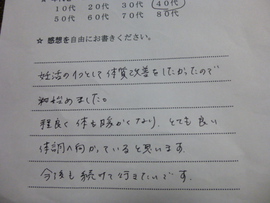 10代 20代 30代 40代
50代 60代 70代 80代
☆ 感想を自由にお書きください。
妊活の1つとして体質改善をしたかったので
始めました。
程良く体も暖かくなり、とても良い
体調へ向かっていると思います
今後も続けて行きたいです。